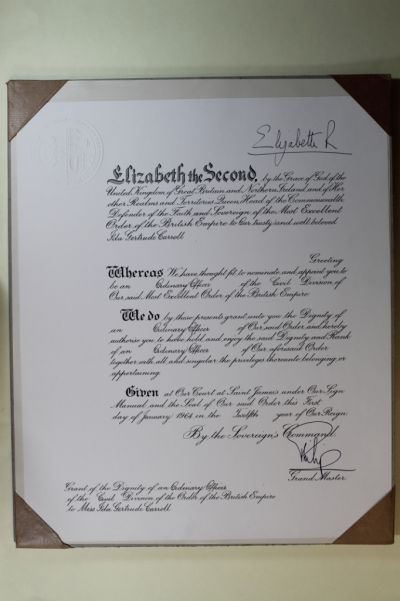 Elizabeth R
Elizabeth the Second, by the Grace of God of the
United Kingdom of Great Britain and Northern Ireland and of Her
other Realms and Territories Queen, Head of the Commonwealth,
Defender of the Faith and Sovereign of the Most Excellent
Order of the British Empire to Our trusty and well beloved
Ida Gertrude Carroll
Greeting
Whereas We have thought fit to nominate and appoint you to
be an Ordinary Officer of the Civil Division of
Our said Most Excellent Order of the British Empire
We do by these presents grant unto you the Dignity of
an Ordinary Officer of Our said Order and hereby
authorise you to have hold and enjoy the said Dignity and Rank
of an Ordinary Officer of Our aforesaid Order
together with all and singular the privileges thereunto belonging or
appertaining.
Given at Our Court at Saint James's under Our Sign
Manual and the Seal of Our said Order this First
day of January 1964 in the Twelfth year of Our Reign.
By the Sovereign's Command.
Philip
Grand Master.
Grant of the Dignity of an Ordinary Officer
of the Civil Division of the Order of the British Empire
to Miss Ida Gertrude Carroll